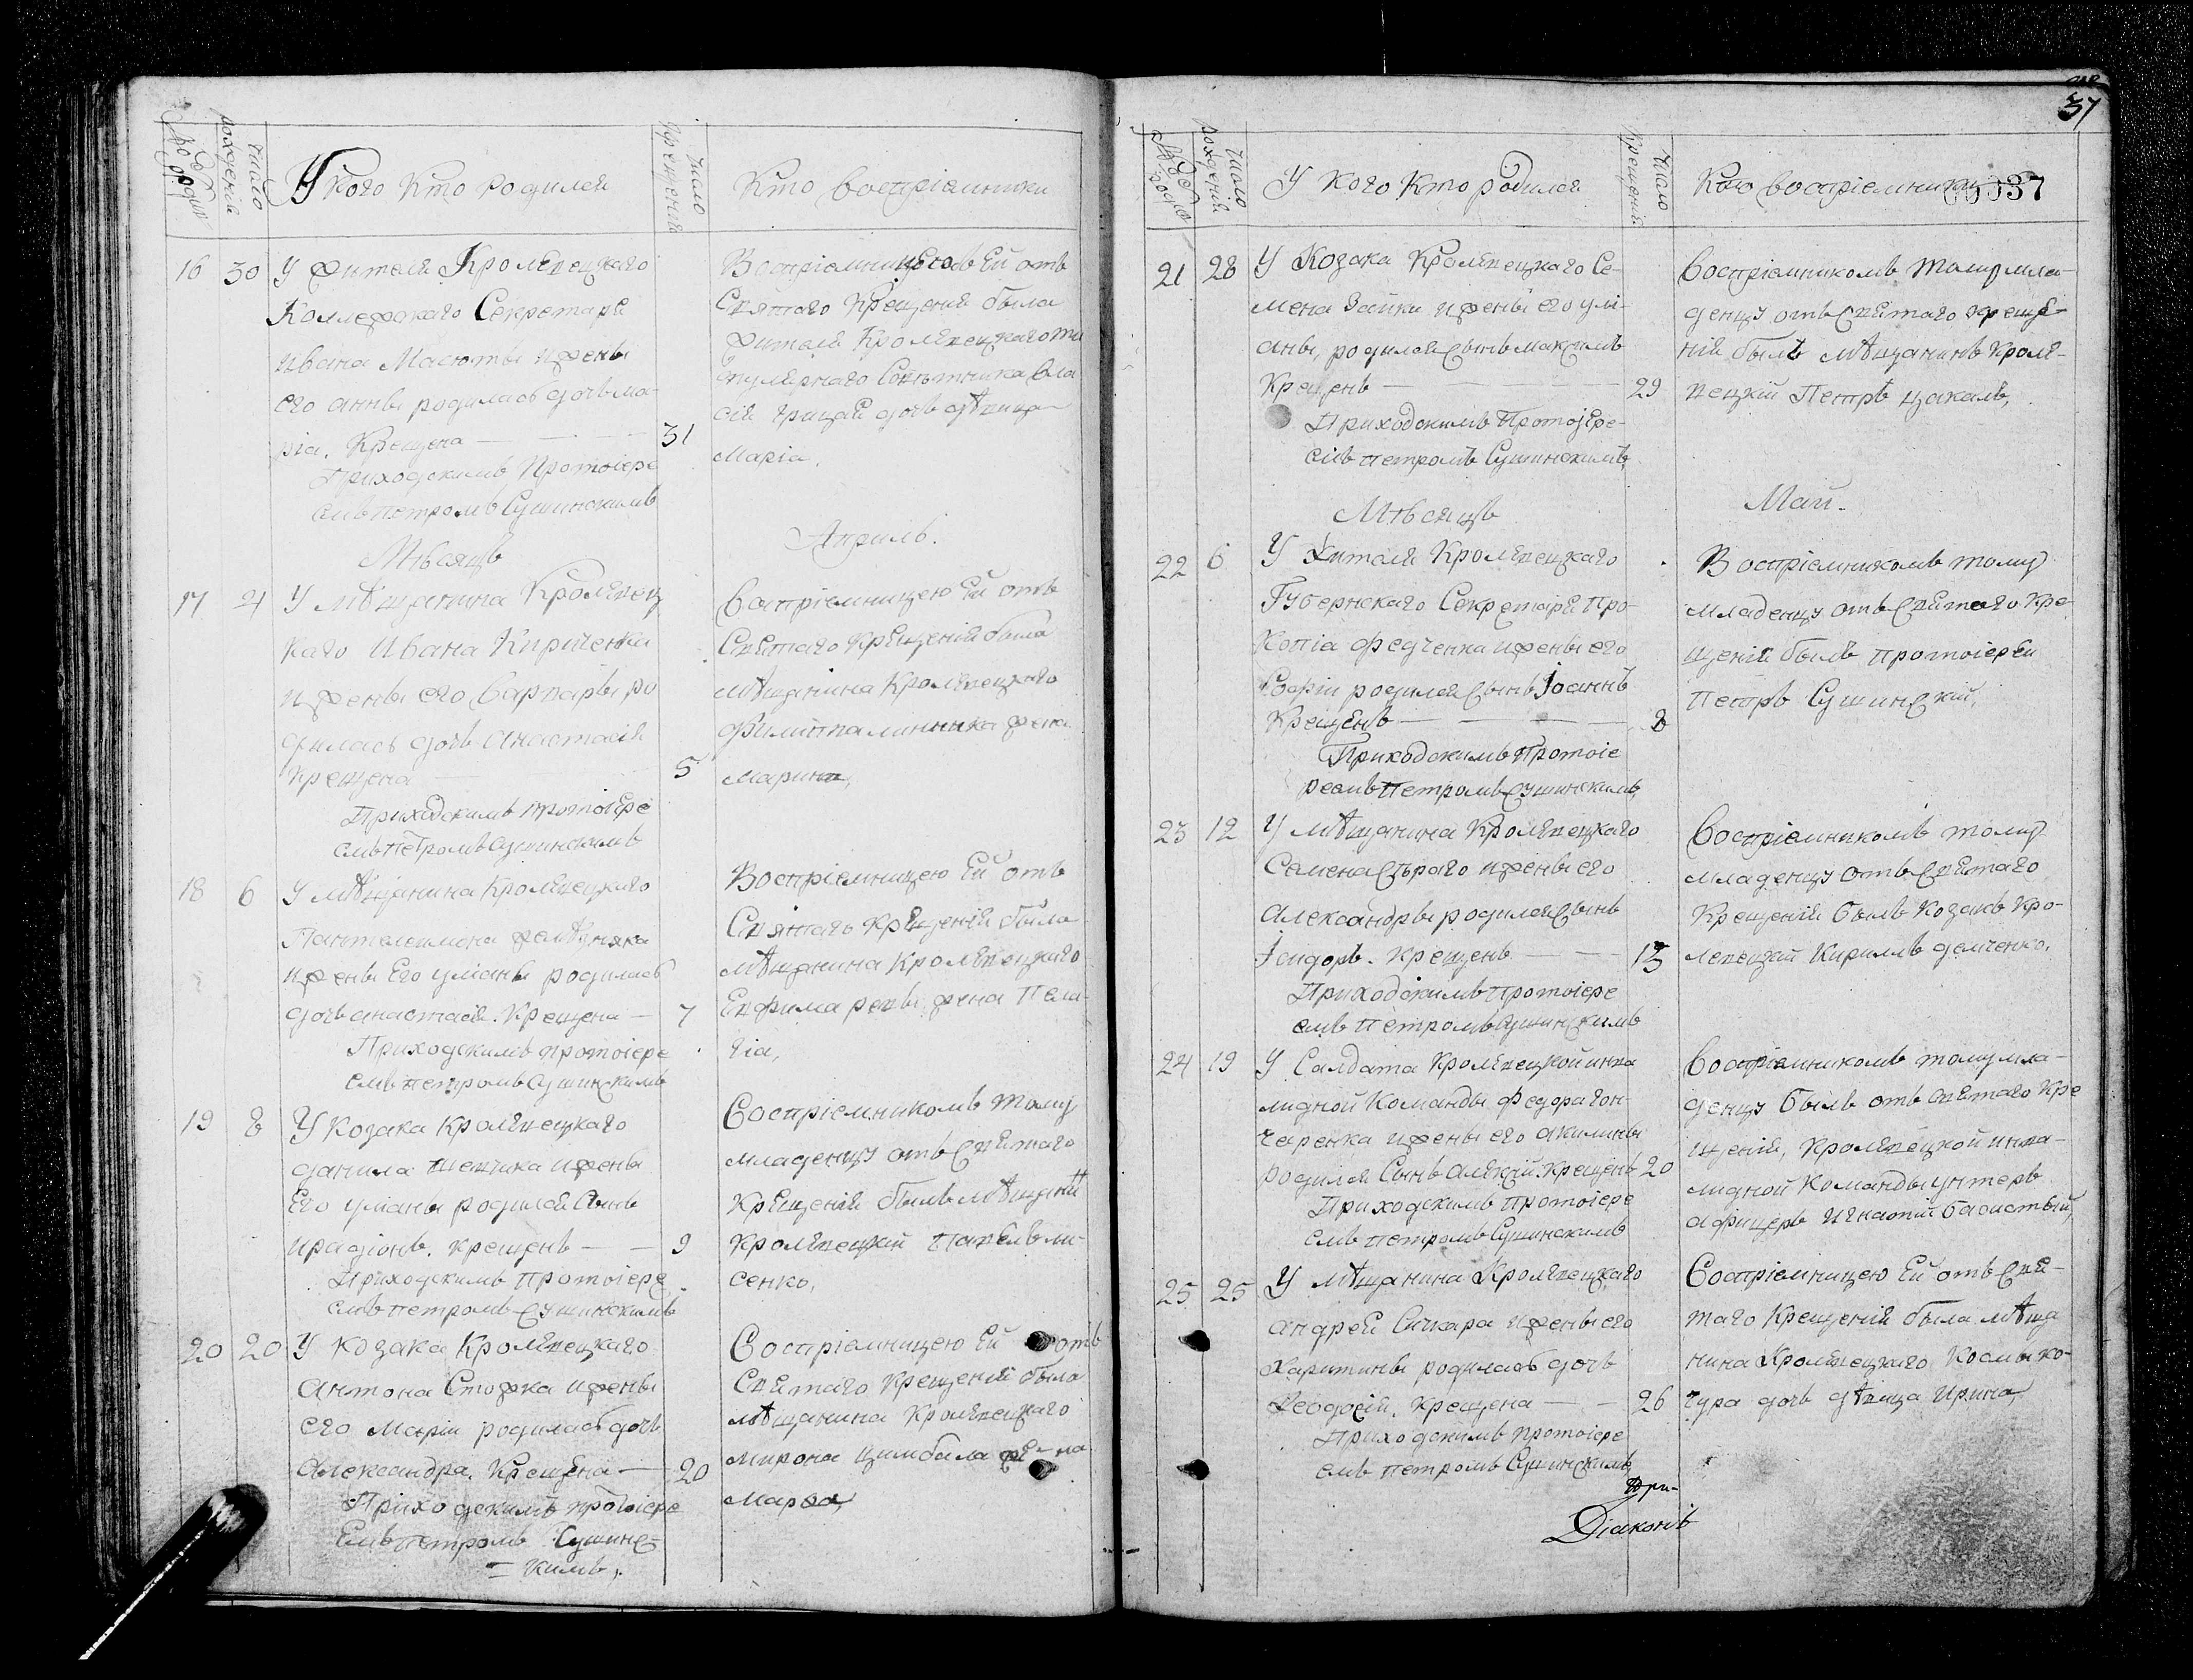 Число рожденія
У кого кто родился
Число крещенія
Кто воспріемники
16 30 У жителя Кролевецкаго
Коллежскаго Секретаря
Ивана Масюты и жены
его Анны родилась дочь Ма-
рія. Крещена — 31
Приходскимъ Протоіере
емъ Петромъ Сушинскимъ
Воспріемницею ей отъ
Святаго Крещенія была
жителя Кролевецкаго ти
тулярнаго Совѣтника Вла
сія Грицая дочь дѣвица
Марія.
Мѣсяцъ Априль.
17 4 У мѣщанина Кролевец
каго Ивана Кириченка
и жены его Варвары ро
дилась дочь Анастасія
Крещена — 5
Приходскимъ Протоіере
емъ Петромъ Сушинскимъ
Воспріемницею ей отъ
Святаго Крещенія была
мѣщанина Кролевецкаго
Филиппа жена
Марина,
18 6 У мѣщанина Кролевецкаго
Пантелеимона
и жены Его Уліаны родилась
дочь Анастасія. Крещена — 7
Приходскимъ протоіере
емъ Петромъ Сушинскимъ
Воспріемницею Ей отъ
Святаго Крещенія была
мѣщанина Кролевецкаго
Евфима жена Пела-
гіа,
19 8 У Козака Кролевецкаго
Данила Шевчика и жены
Его Уліаны родился Сынъ
Иродіонъ. Крещенъ — — 9
Приходскимъ Протоіере
емъ Петромъ Сушинскимъ
Воспріемникомъ тому
младенцу отъ Святаго
Крещенія былъ мѣщанин
Кролевецкій Павелъ Ли-
сенко,
20 20 У Козака Кролевецкаго
Антона Стожка и жены
его Маріи родилась дочь
Александра. Крещена — 20
Приходскимъ протоіере
Емъ Петромъ Сушинс=
= кимъ,
Воспріемницею Ей отъ
Святаго Крещенія была
мѣщанина Кролевецкаго
Мирона Цимбала же-на
Марѳа,
37
00037
Число рожденій
У кого кто родился
Число крещеній
Кто воспріемники
21 28 У Козака Кролевецкаго Се-
мена Зайки и жены его Улі-
аны, родился Сынъ Максимъ
Крещенъ — 29
Приходскимъ Протоіере-
емъ Петромъ Сушинскимъ,
Воспріемникомъ тому мла-
денцу отъ Святаго Креще-
нія былъ мѣщанинъ Кроле-
вецкій Петръ Цакалъ,
Мѣсяцъ Май.
22 6 У Жителя Кролевецкаго
Губернскаго Секретаря Про-
копіа Федченка и жены его
Софіи родился Сынъ Іоаннъ
Крещенъ — 8
Приходскимъ Протоіе
реемъ Петромъ Сушинскимъ,
Воспріемникомъ тому
младенцу отъ Святаго Кре-
щенія былъ протоіерей
Петръ Сушинскій,
23 12 У мѣщанина Кролевецкаго
Семена Сѣраго и жены его
Александры родился Сынъ
Ісидоръ. Крещенъ — — 13
Приходскимъ Протоіере
емъ Петромъ Сушинскимъ
Воспріемникомъ тому
младенцу отъ Святаго
Крещенія былъ Козакъ Кро-
левецкій Кириллъ Демченко.
24 19 У Салдата Кролевецкой инва
лидной Команды Федора Гон-
чаренка и жены его Акилины
родился Сынъ Алексій. Крещенъ 20
Приходскимъ Протоіере
емъ Петромъ Сушинскимъ
Воспріемникомъ тому мла-
денцу былъ отъ Святаго Кре
щенія, Кролевецкой инва-
лидной Команды унтеръ
афицеръ Игнатій
25 25 У мѣщанина Кролевецкаго
Андрея Сичкара и жены его
Харитины родилась дочь
Феодосія. Крещена — — 26
Приходскимъ Протоіере
емъ Петромъ Сушинскимъ,
Воспріемницею Ей отъ Свя-
таго Крещенія была мѣща
нина Кролевецкаго Косьмы Ко-
чура дочь дѣвица Ирина,
при-
Діаконъ